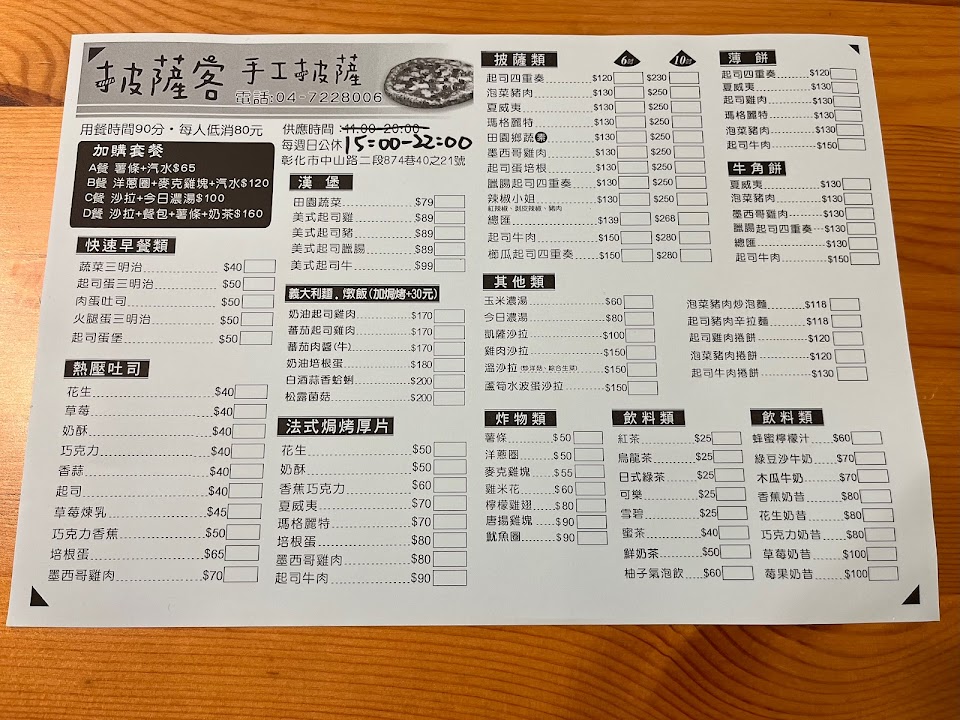 披薩客 手工披薩
電話:04-7228006
用餐時間90分・每人低消80元
供應時間:11:00-20:00
15:00-22:00
每週日公休
彰化市中山路二段874巷40之21號
加購套餐
A餐 薯條+汽水$65
B餐 洋蔥圈+麥克雞塊+汽水$120
C餐 沙拉+今日濃湯$100
D餐 沙拉+餐包+薯條+奶茶$160
快速早餐類
蔬菜三明治 $40
起司蛋三明治 $50
肉蛋吐司 $50
火腿蛋三明治 $50
起司蛋堡 $50
熱壓吐司
花生 $40
草莓 $40
奶酥 $40
巧克力 $40
香蒜 $40
起司 $40
草莓煉乳 $45
巧克力香蕉 $50
培根蛋 $65
墨西哥雞肉 $70
漢堡
田園蔬菜 $79
美式起司雞 $89
美式起司豬 $89
美式起司臘腸 $89
美式起司牛 $99
義大利麵、燉飯(加焗烤+30元)
奶油起司雞肉 $170
蕃茄起司雞肉 $170
蕃茄肉醬(牛) $170
奶油培根蛋 $180
白酒蒜香蛤蜊 $200
松露菌菇 $200
法式焗烤厚片
花生 $50
奶酥 $50
香蕉巧克力 $60
夏威夷 $70
瑪格麗特 $70
培根蛋 $80
墨西哥雞肉 $80
起司牛肉 $90
披薩類 6吋 10吋
起司四重奏 $120 $230
泡菜豬肉 $130 $250
夏威夷 $130 $250
瑪格麗特 $130 $250
田園鄉蔬 素 $130 $250
墨西哥雞肉 $130 $250
起司蛋培根 $130 $250
臘腸起司四重奏 $130 $250
辣椒小姐 $130 $250
紅辣椒、剝皮辣椒、豬肉
總匯 $139 $268
起司牛肉 $150 $280
櫛瓜起司四重奏 $150 $280
薄餅
起司四重奏 $120
夏威夷 $130
起司雞肉 $130
瑪格麗特 $130
泡菜豬肉 $130
起司牛肉 $150
牛角餅
夏威夷 $130
泡菜豬肉 $130
墨西哥雞肉 $130
臘腸起司四重奏 $130
總匯 $130
起司牛肉 $150
其他類
玉米濃湯 $60
今日濃湯 $80
凱薩沙拉 $100
雞肉沙拉 $150
溫沙拉(野洋菇、綜合生菜) $150
蘆筍水波蛋沙拉 $150
泡菜豬肉炒泡麵 $118
起司豬肉辛拉麵 $118
起司雞肉捲餅 $120
泡菜豬肉捲餅 $120
起司牛肉捲餅 $130
炸物類
薯條 $50
洋蔥圈 $50
麥克雞塊 $55
雞米花 $60
檸檬雞翅 $80
唐揚雞塊 $90
魷魚圈 $90
飲料類
紅茶 $25
烏龍茶 $25
日式綠茶 $25
可樂 $25
雪碧 $25
蜜茶 $40
鮮奶茶 $50
柚子氣泡飲 $60
飲料類
蜂蜜檸檬汁 $60
綠豆沙牛奶 $70
木瓜牛奶 $70
香蕉奶昔 $80
花生奶昔 $80
巧克力奶昔 $80
草莓奶昔 $100
莓果奶昔 $100